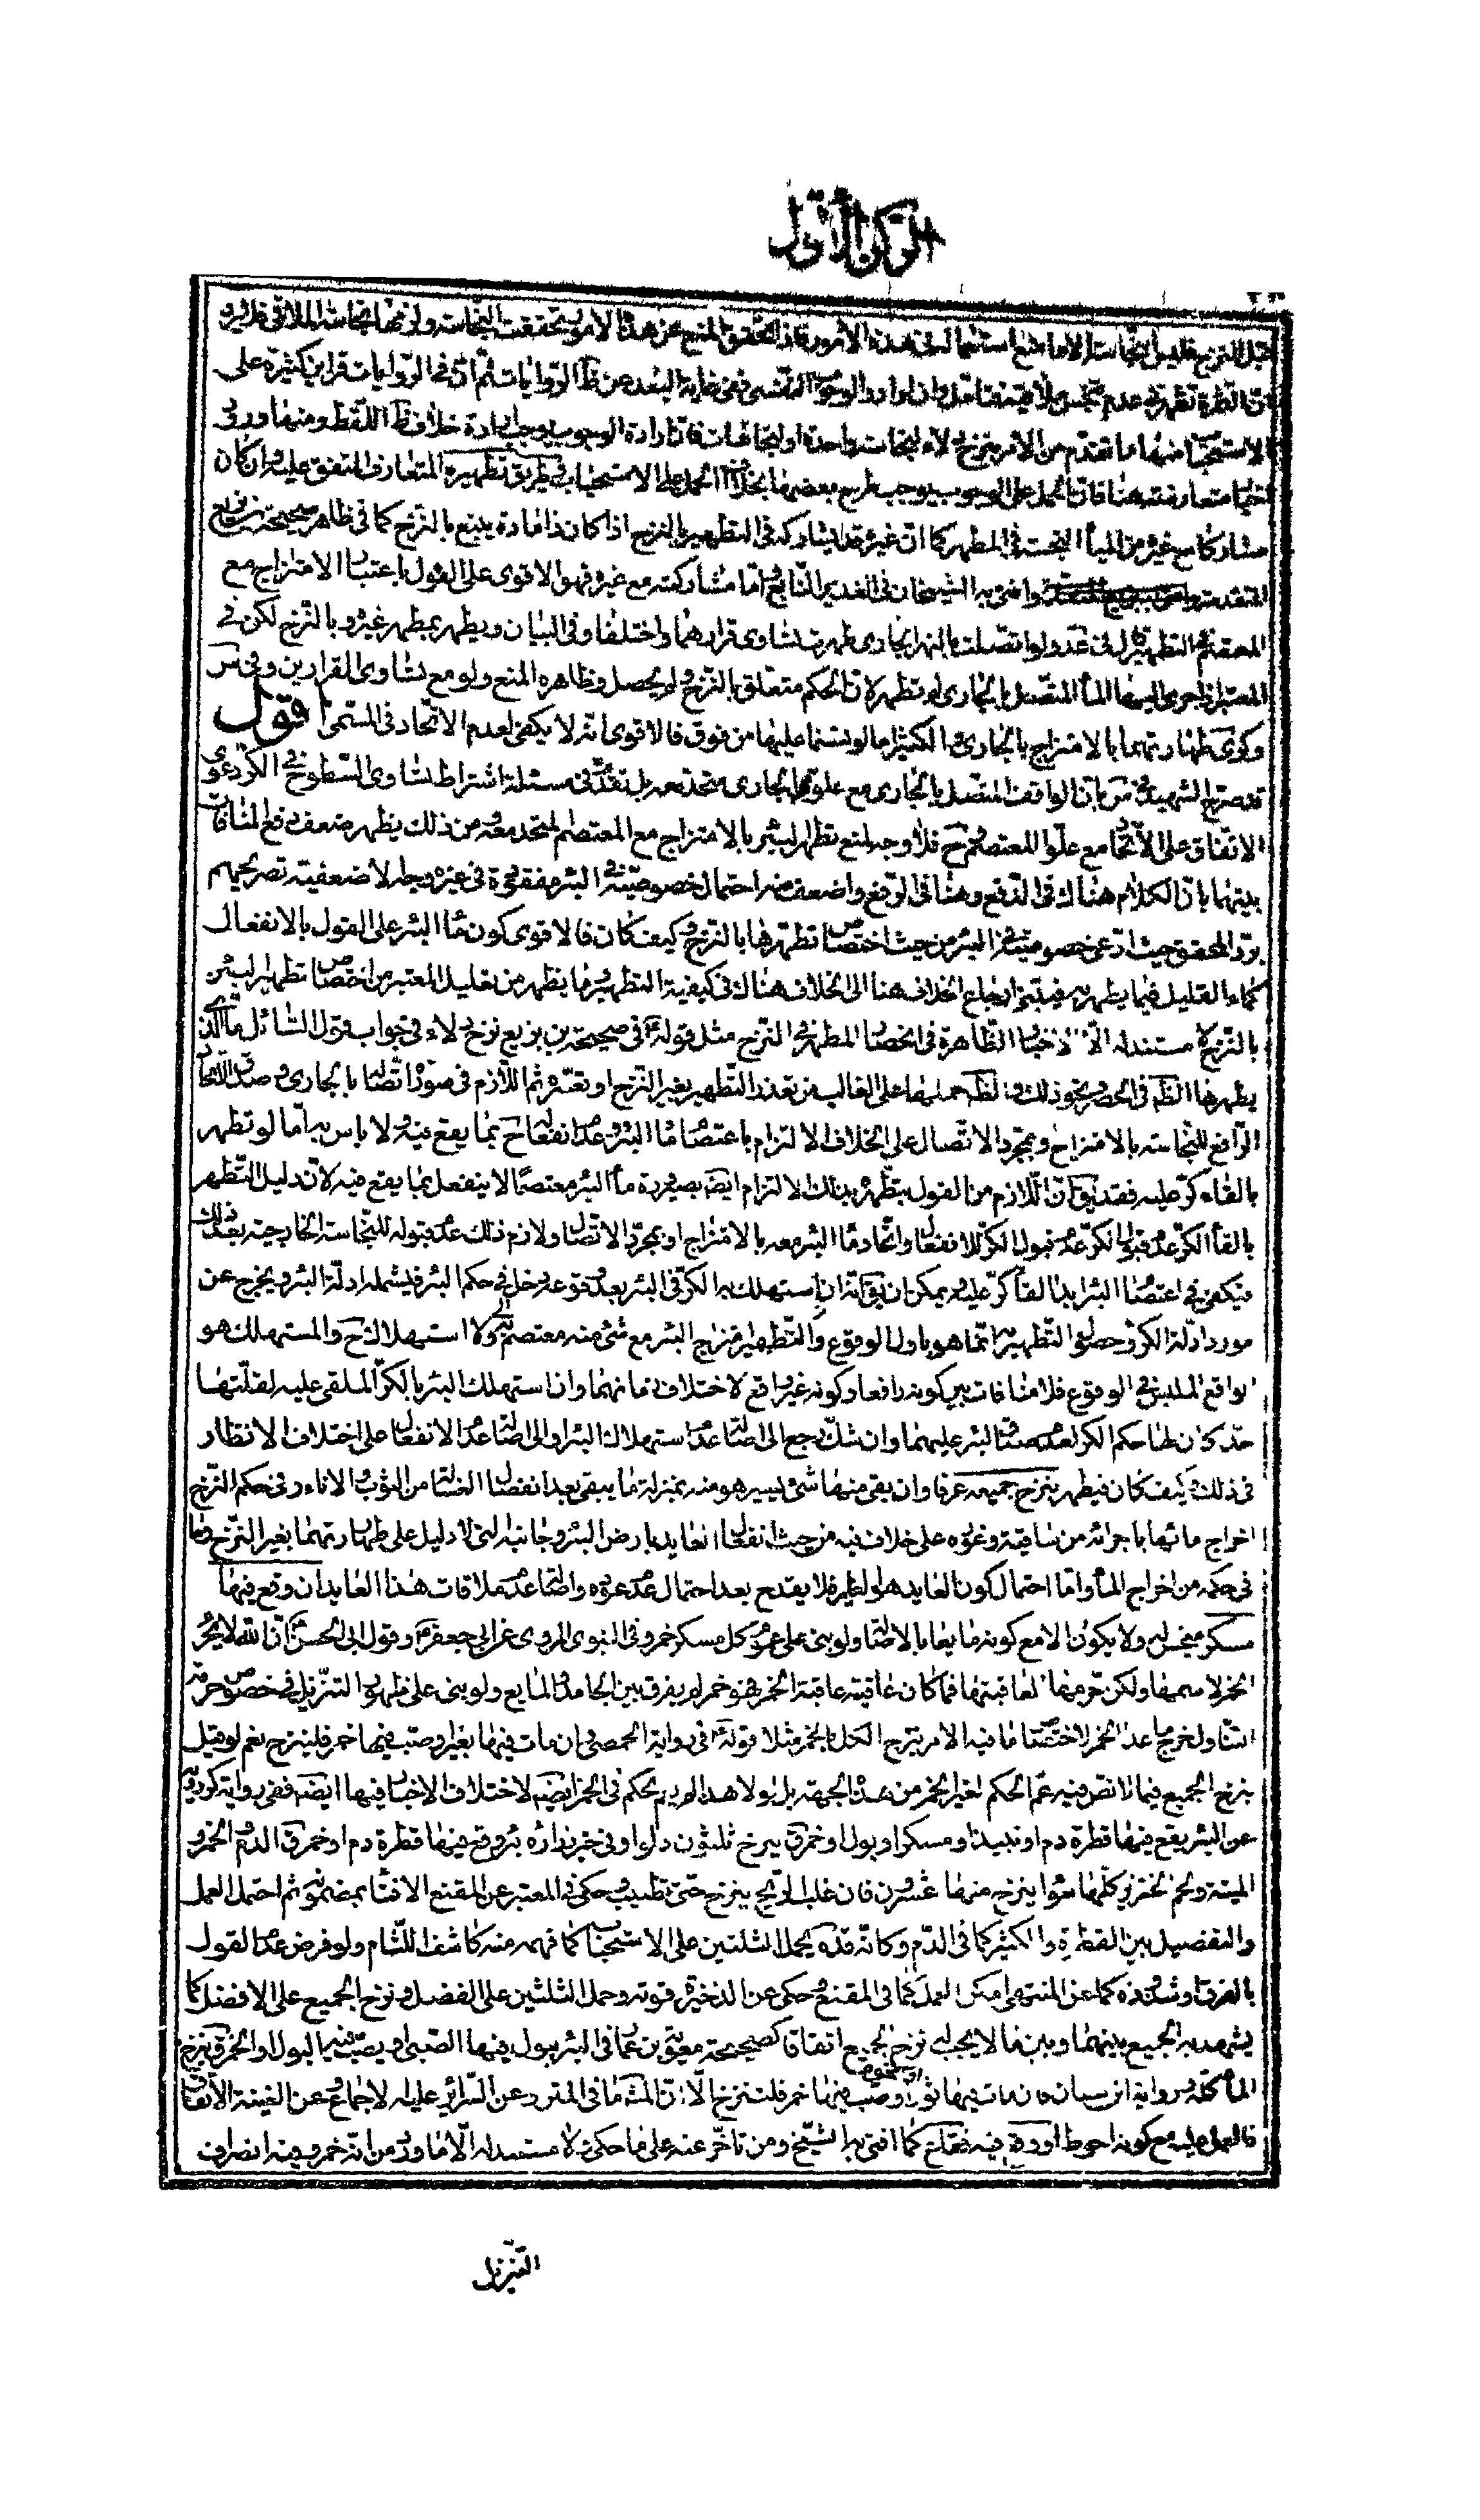 الركن الأول
قبل النزح فليس النجاسة الا ما منع استعماله فى هذه الامور فاذا تحقق المنع عن هذه الامور تحققت النجاسة
عن ظ الروايات ثم ان فى الروايات قراين كثيرة على
الاستحباب منها ما تقدم من الامر بنزح دلاء لنجاسات واحدة فان ارادة الوجوب يوجب ارادة خلاف ظ اللفظ ومنها ورود
اخبار متعارضة هنا فان الحمل على الوجوب يوجب طرح بعضها بخلاف الحمل على الاستحباب فى طريق تطهيره المتعارف المتفق عليه وان كان
مشاركا مع غيره من المياه النجسة فى المطهر كما ان غيره قد يشاركه فى التطهير بالنزح اذا كان ذا مادة ينبع بالنزح كما فى ظاهر صحيحة ابن بزيع
المتقدمة وافتى به الشيخان فى الغدير النابع واما مشاركته مع غيره فهو الاقوى على القول باعتبار الامتزاج مع
المعتصم فى التطهير قال فى عد ولو اتصلت بالنهر الجارى طهرت تساوى قراراهما واختلفا وفى البيان ويطهر بمطهر غيره وبالنزح لكن فى
المعتبر اذا جرى اليها الماء المتصل بالجارى لم تطهر لان الحكم متعلق بالنزح ولم يحصل وظاهره المنع ولو مع تساوى القرارين وفى س
وكرى طهارتها بالامتزاج بالجارى والكثير اما لو تسنما عليها من فوق فالاقوى انه لا يكفى لعدم الاتحاد فى المسمى اقول
قد صرح الشهيد فى س بان الواقف المتصل بالجارى مع علو الجارى متحد معه بل تقدم فى مسئلة اشتراط تساوى السطوح فى الكر دعوى
الاتفاق على الاتحاد مع علو المعتصم وح فلا وجه لمنع تطهر البئر بالامتزاج مع المعتصم المتحد معه ومن ذلك يظهر ضعف دفع المنافات
بينهما بان الكلام هناك فى الدفع وهنا فى الرفع واضعف منه احتمال خصوصية فى البئر مفقودة فى غيره وجه الاضعفية تصريحهم
برد المحقق حيث ادعى خصوصية فى البئر من حيث اختصاص تطهرها بالنزح وكيف كان فالاقوى كون ماء البئر على القول بالانفعال
كماء القليل فيما يطهر به فيتجه ارجاع الخلاف هنا الى الخلاف هناك فى كيفية التطهير وما يظهر من تعليل المعتبر من اختصاص تطهير البئر
بالنزح لا مستند له الا الاخبار الظاهرة فى انحصار المطهر فى النزح مثل قوله ع فى صحيحة بن بزيع نزح دلاء فى جواب قول السائل ما الذى
يطهرها الظ فى الحصر ونحو ذلك والظ حملها على الغالب من تعذر التطهير بغير النزح او تعسره ثم اللازم فى صورة اتصاله بالجارى وصدق الاتحاد
الرافع للنجاسة بالامتزاج وبمجرد الاتصال على الخلاف الالتزام باعتصام ماء البئر وعدم انفعاله ح بما يقع فيه ولا باس به اما لو تطهر
بالقاء كر عليه فقد يق ان اللازم من القول بتطهره بذلك الالتزام ايضا بصيرورة ماء البئر معتصما لا ينفعل بما يقع فيه لان دليل التطهر
بالقاء الكر عدم قبول الكر للانفعال واتحاد ماء البئر معه بالامتزاج او بمجرد الاتصال ولازم ذلك عدم قبوله للنجاسة الخارجية بعد ذلك
فيكفى فى اعتصام البئر ابدا القاء كر عليه ويمكن ان يق انه ان استهلك ماء الكر فى البئر بعد وقوعه دخل فى حكم البئر فيشمله ادلة البئر ويخرج عن
مورد ادلة الكر وحصول التطهير به انما هو باول الوقوع والتطهير امتزاج البئر مع شئ منه معتصم ولا استهلاك ح والمستهلك هو
الواقع فى الوقوع فلا منافات بين كونه رافعا وكونه غير دافع لاختلاف زمانهما وان استهلك البئر بالكر الملقى عليه لقلتها
جدا كان لها حكم الكر لعدم صدق البئر عليهما وان شك رجع الى اصالة عدم استهلاك البئر او الى اصالة عدم الانفعال على اختلاف الانظار
فى ذلك وكيف كان فيطهر بنزح جميعه عرفا وان بقى منها شئ يسير هو منه بمنزلة ما يبقى بعد انفصال الغسالة من الثوب والاناء وفى حكم النزح
اخراج مائها باجرائه من ساقية وغوره على خلاف فيه من حيث انفعال العايد بارض البئر وجانبه التى لا دليل على طهارتهما بغير النزح وما
فى حكمه من اخراج الماء واما احتمال كون العايد هو الغاير فلا يقدح بعد احتمال عدم عوده واصالة عدم ملاقات هذا العايد ان وقع فيها
مسكر ينجس له ولا يكون الا مع كونه مايعا بالاصالة ولو بنى على عموم كل مسكر خمر وفى النبوى المروى عن ابى جعفر ع وقول ابى الحسن ع ان الله لا يحرم
الخمر لاسمها ولكن حرمها لعاقبتها فما كان عاقبته عاقبة الخمر فهو خمر لم يفرق بين الجامد والمايع ولو بنى على ظهور التنزيل فى خصوص حرمة
التناول خرج ما عد الخمر لاختصاص ما فيه الامر بنزح الكل بالخمر مثلا قوله ع فى رواية الحمصى وان مات فيها بعير او صب فيها خمر فلينزح نعم لو قيل
بنزح الجميع فيما لا نص فيه عم الحكم لغير الخمر من هذه الجهة بل لولا هذا لم يتم الحكم فى الخمر ايضا لاختلاف الاخبار فيها ايضا ففى رواية كردويه
عن البئر يقع فيها قطرة دم او نبيذ او مسكر او بول او خمر ق ينزح ثلثون دلوا وفى خبر زرارة بئر وقع فيها قطرة دم او خمر ق الدم والخمر و
الميتة ولحم الخنزير كلها سواء ينزح منها عشرون فان غلب الريح ينزح حتى تطيب وحكى فى المعتبر عن المقنع الافتاء بمضمونه ثم احتمل العمل
والتفصيل بين القطرة والكثير كما فى الدم وكانه قده يحمل الثلثين على الاستحباب كما فهمه منه كاشف اللثام ولو فرض عدم القول
بالفرق او شذوذه كما عن المنتهى امكن العمل كما فى المقنع وحكى عن الذخيرة قوته وحمل الثلثين على الفضل ونزح الجميع على الافضل كما
يشهد به الجمع بينهما وبين ما لا يجب له نزح الجميع اتفاقا كصحيحة معوية بن عمار فى البئر يبول فيها الصبى او يصب فيها البول او الخمر ق ينزح
الماء كله ورواية ابن سنان فان مات فيها ثور او نحوه او صب فيها خمر فلتنزح الا ان المش ما فى المتن وعن السرائر عليه الاجماع وعن الغنية الاتفاق
فالعمل عليه مع كونه احوط او وقع فيه فقاع كما افتى به الشيخ ومن تاخر عنه على ما حكى ولا مستند له الا ما ورد من انه خمر وفيه انصراف
التنزيل